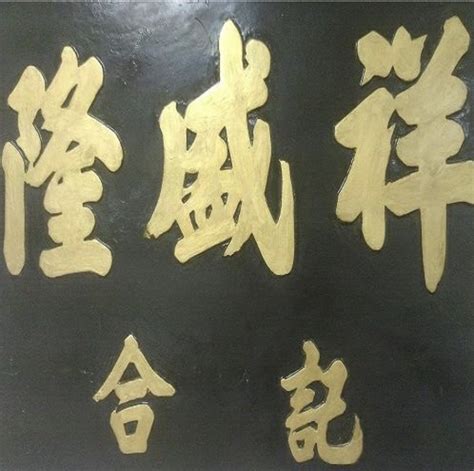 隆盛祥
合記